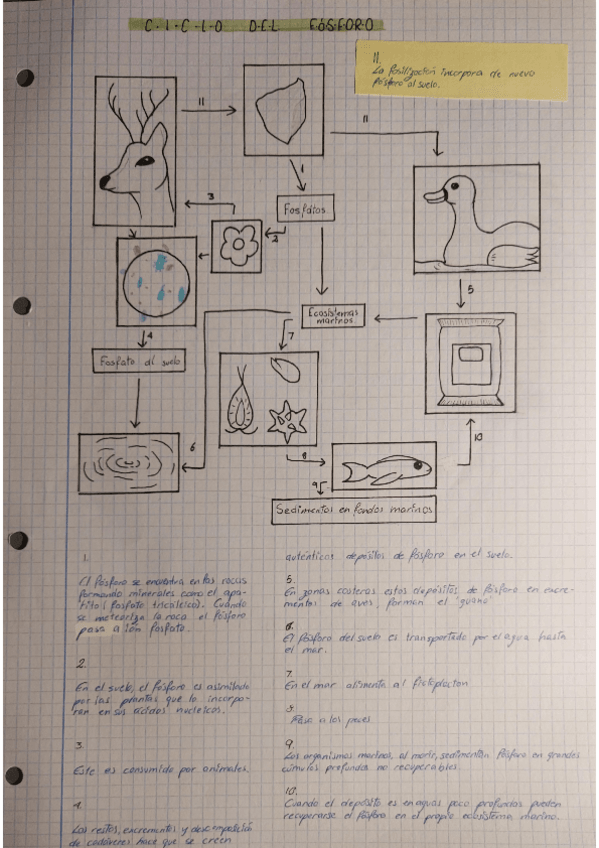 CICLO DEL FÓSFORO
11.
La fosilización incorpora de nuevo
fósforo al suelo.
11
11
1
Fosfatos
3
2
5
4
Ecosistemas
marinos
7
Fosfato del suelo
6
8
10
9
Sedimentos en fondos marinos
1.
El fósforo se encuentra en las rocas
formando minerales como el apa-
tito (fosfato tricálcico). Cuando
se meteoriza la roca el fósforo
pasa a ión fosfato.
2
En el suelo, el fósforo es asimilado
por las plantas que lo incorpo-
ran en sus ácidos nucleicos.
3.
Este es consumido por animales.
4.
Los restos, excrementos y descomposición
de cadáveres hace que se creen
auténticos depósitos de fósforo en el suelo.
5.
En zonas costeras estos depósitos de fósforo en excre-
mentos de aves, forman el "guano"
6.
El fósforo del suelo es transportado por el agua hasta
el mar.
7.
En el mar alimenta al fitoplacton
8.
Pasa a los peces
9.
Los organismos marinos, al morir, sedimentan fósforo en grandes
cúmulos profundos no recuperables.
10.
Cuando el depósito es en aguas poco profundas pueden
recuperarse el fósforo en el propio ecosistema marino.